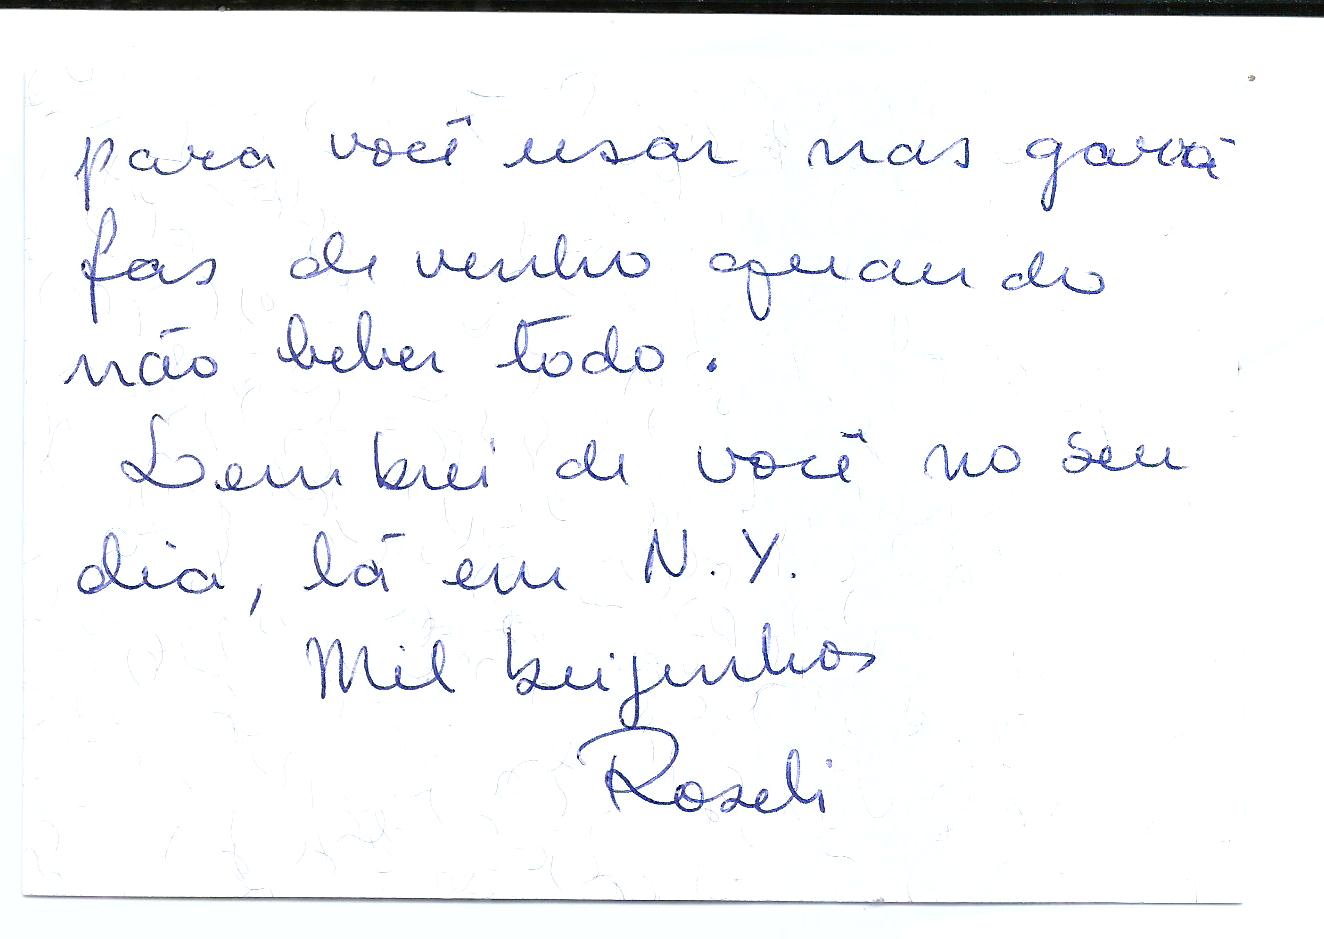 para você usar nas garra-
fas de vinho quando
não beber todo.
Lembrei de você no seu
dia, lá em N.Y.
Mil beijinhos
Roseli